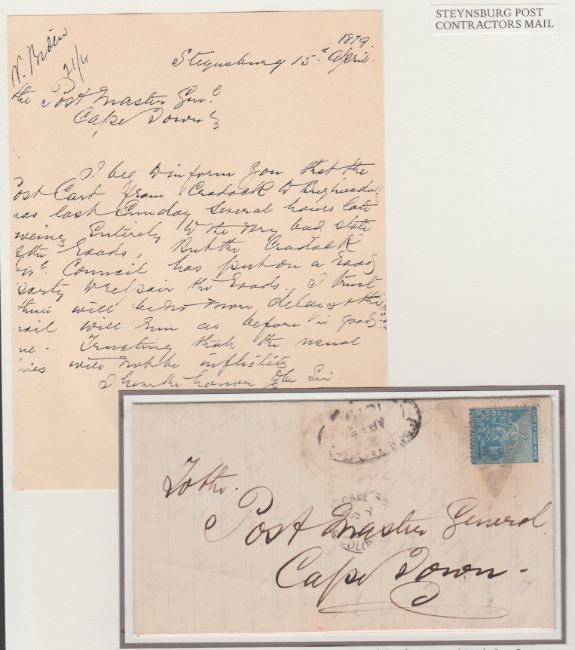 STEYNSBURG POST
CONTRACTORS MAIL
1879
Steynsburg 15th April
21/4
the Post Master Genl
Cape Town
I beg to inform you that the
Post Cart from Cradock to
was last Sunday several hours late
oweing Entirely to the very bad state
of the Roads, But the Cradock
Council has put on a Road
party to repair the Roads, I trust
there will be no more delay & the
mail will run as before in good
Trusting that the usual
will not be inflicted
I have the honor Sir.
To the.
Post Master General
Cape Town-